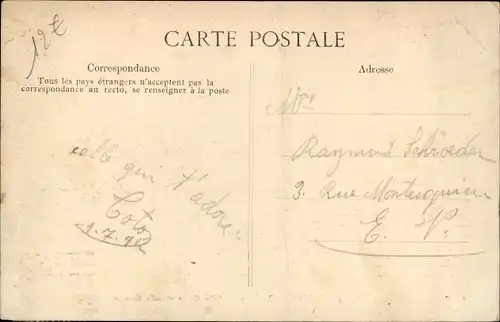 12€
CARTE POSTALE
Correspondance
Tous les pays étrangers n'acceptent pas la
correspondance au recto, se renseigner à la poste
Adresse
celle qui t'adore.
Toto
Raymond Schröeder
3. Rue Montesquieu
E. V.